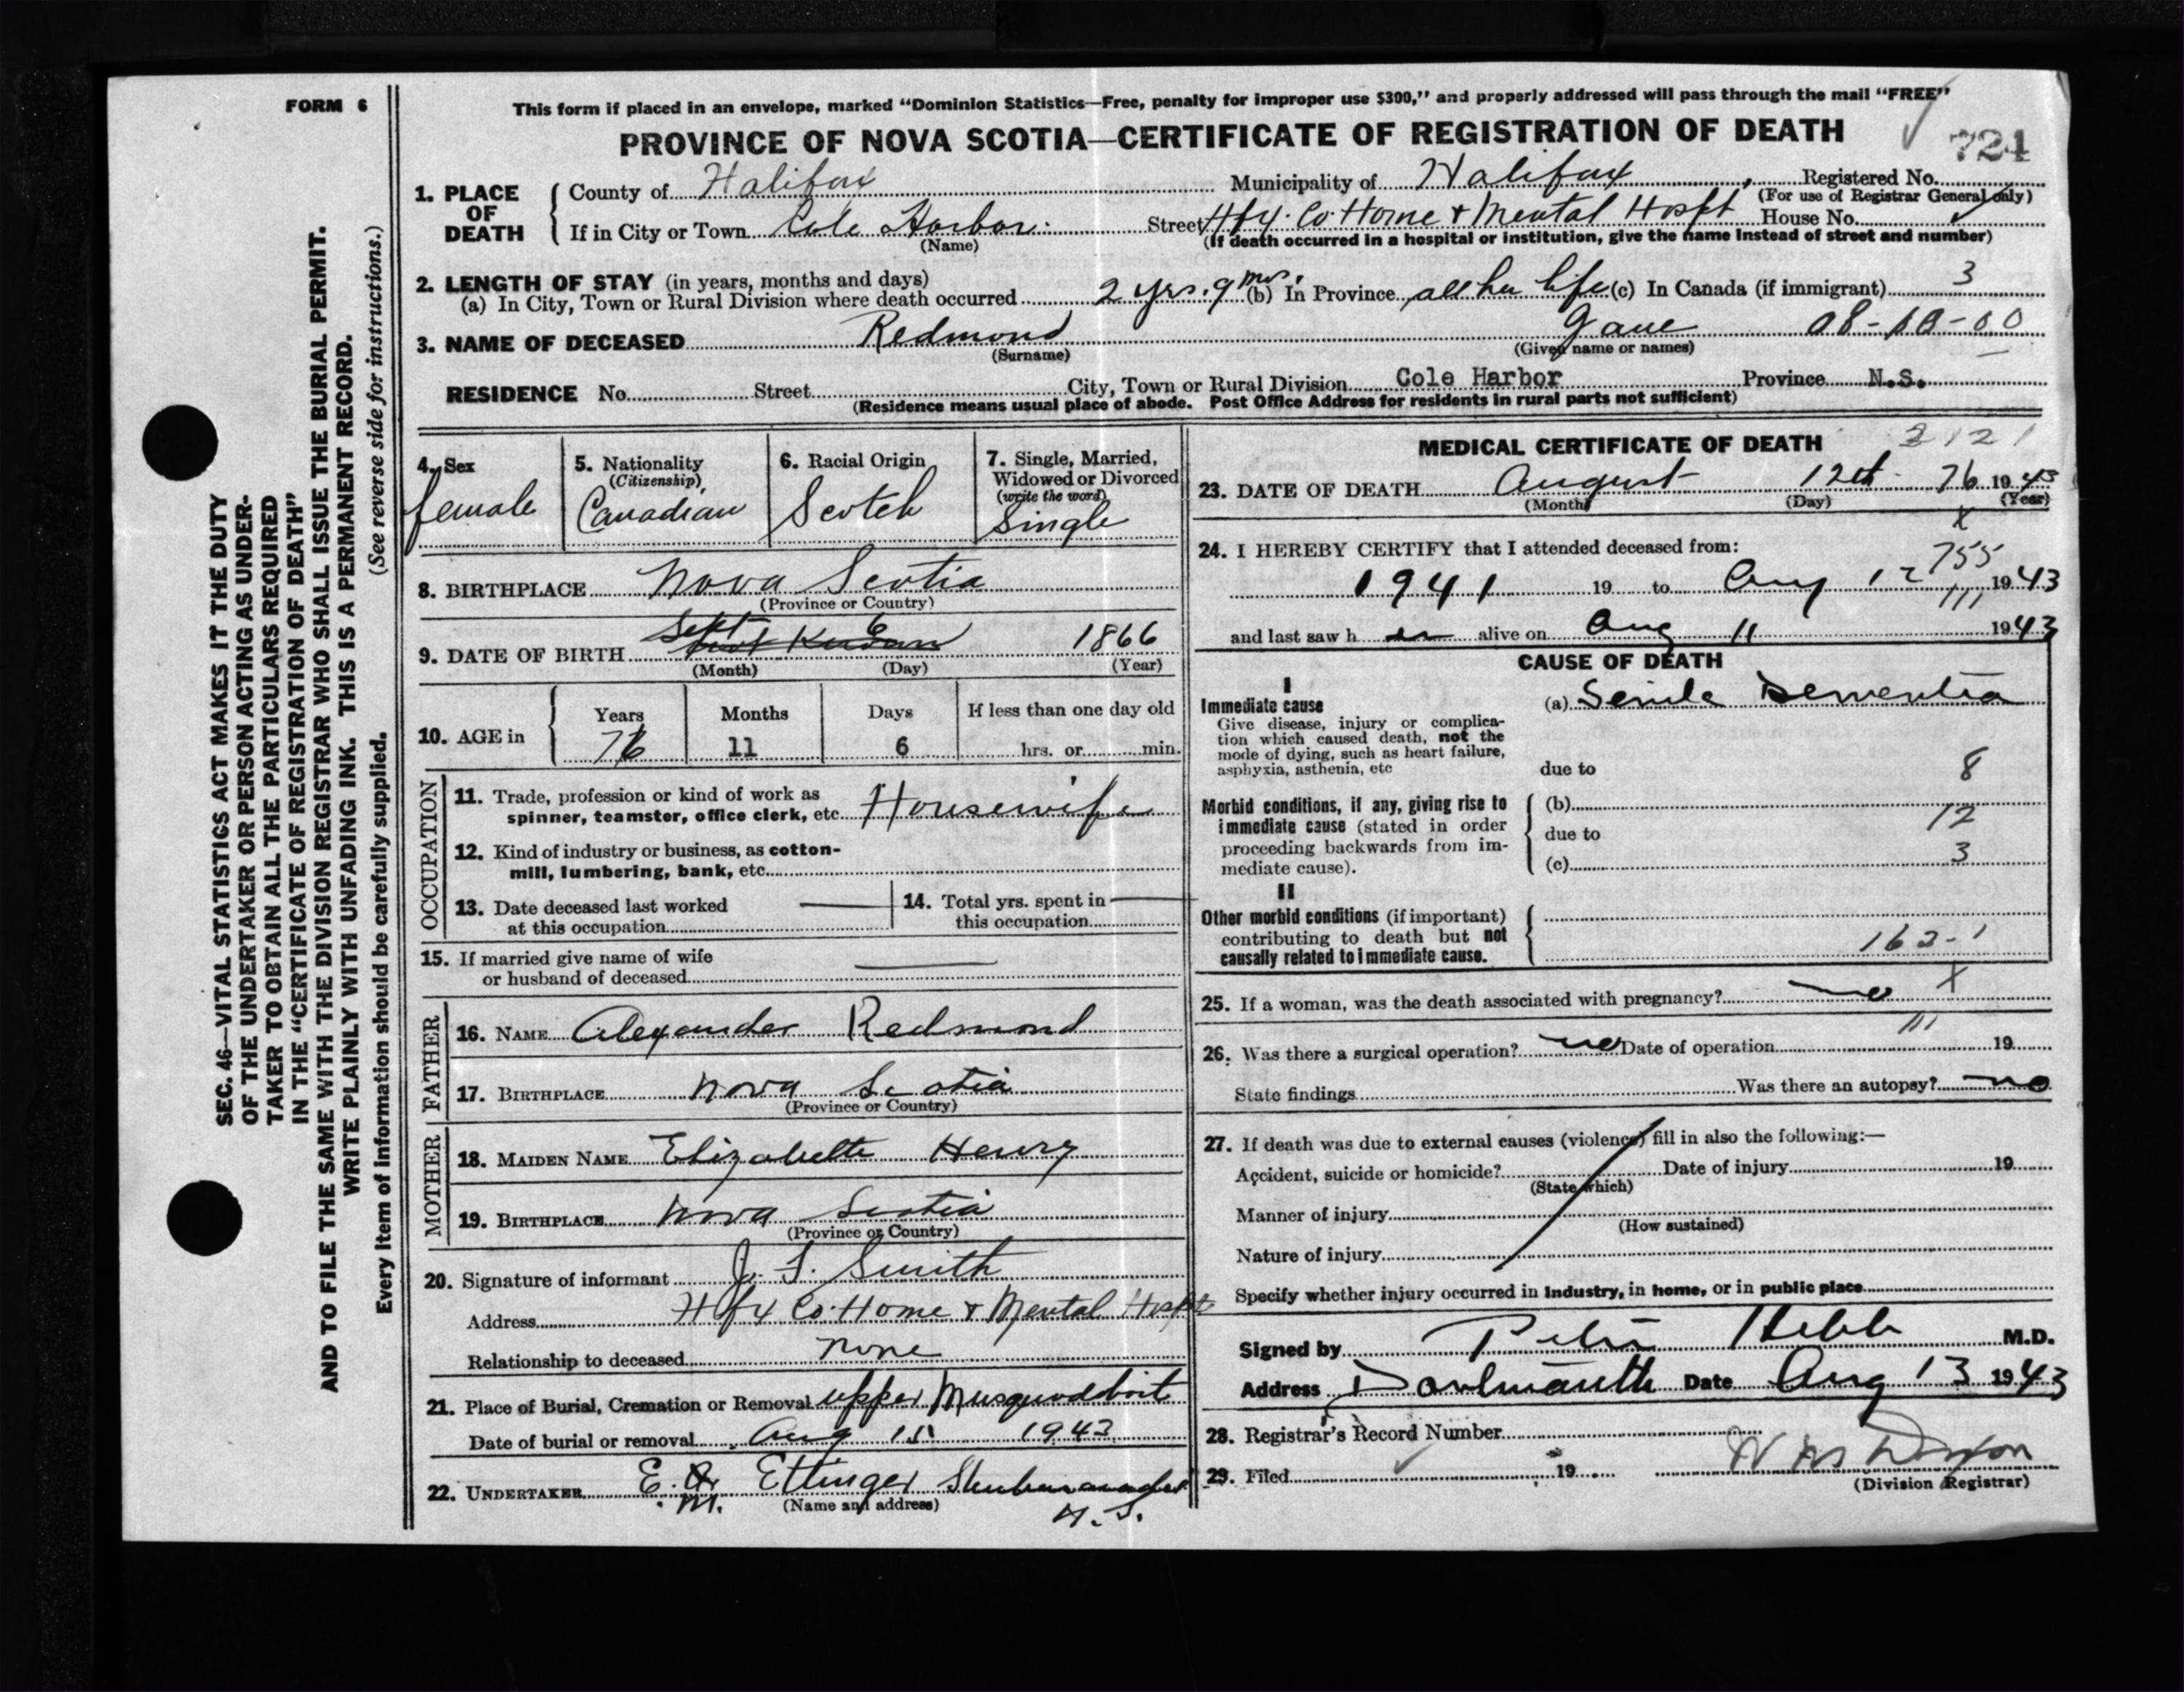 FORM 6
This form if placed in an envelope, marked “Dominion Statistics—Free, penalty for improper use $300,” and properly addressed will pass through the mail “FREE”
PROVINCE OF NOVA SCOTIA—CERTIFICATE OF REGISTRATION OF DEATH
724
1. PLACE OF DEATH County of Halifax Municipality of Halifax, Registered No.
(For use of Registrar General only)
If in City or Town Cole Harbor. Street Hfx. Co. Home & Mental Hospt House No.
(Name) (If death occurred in a hospital or institution, give the name instead of street and number)
2. LENGTH OF STAY (in years, months and days)
(a) In City, Town or Rural Division where death occurred 2 yrs. 9 mos. (b) In Province all her life (c) In Canada (if immigrant) 3
3. NAME OF DECEASED Redmond Jane 08-00-00
(Surname) (Given name or names)
RESIDENCE No. Street City, Town or Rural Division Cole Harbor Province N.S.
(Residence means usual place of abode. Post Office Address for residents in rural parts not sufficient)
4. Sex
female
5. Nationality
(Citizenship)
Canadian
6. Racial Origin
Scotch
7. Single, Married,
Widowed or Divorced
(write the word)
Single
8. BIRTHPLACE Nova Scotia
(Province or Country)
9. DATE OF BIRTH Sept 6 1866
(Month) (Day) (Year)
10. AGE in
Years Months Days If less than one day old
76 11 6 hrs. or min.
OCCUPATION
11. Trade, profession or kind of work as
spinner, teamster, office clerk, etc. Housewife
12. Kind of industry or business, as cotton-
mill, lumbering, bank, etc.
13. Date deceased last worked
at this occupation
14. Total yrs. spent in
this occupation
15. If married give name of wife
or husband of deceased
FATHER
16. NAME Alexander Redmond
17. BIRTHPLACE Nova Scotia
(Province or Country)
MOTHER
18. MAIDEN NAME Elizabeth Henry
19. BIRTHPLACE Nova Scotia
(Province or Country)
20. Signature of informant J. F. Smith
Address Hfx Co. Home & Mental Hospt
Relationship to deceased none
21. Place of Burial, Cremation or Removal upper Musquodoboit
Date of burial or removal Aug 15 1943
22. UNDERTAKER E. M. Ettinger Shubenacadie
(Name and address) N.S.
MEDICAL CERTIFICATE OF DEATH 2121
23. DATE OF DEATH August 12th 76 1943
(Month) (Day) (Year)
X
24. I HEREBY CERTIFY that I attended deceased from:
755
1941 19 to Aug 12 1943
111
and last saw h er alive on Aug 11 1943
CAUSE OF DEATH
I
Immediate cause
Give disease, injury or complica-
tion which caused death, not the
mode of dying, such as heart failure,
asphyxia, asthenia, etc
(a) Senile Dementia
due to 8
Morbid conditions, if any, giving rise to
immediate cause (stated in order
proceeding backwards from im-
mediate cause).
(b)
12
due to
(c) 3
II
Other morbid conditions (if important)
contributing to death but not
causally related to immediate cause.
162-1
25. If a woman, was the death associated with pregnancy? no X
111
26. Was there a surgical operation? no Date of operation 19
State findings Was there an autopsy? no
27. If death was due to external causes (violence) fill in also the following:—
Accident, suicide or homicide? Date of injury 19
(State which)
Manner of injury
(How sustained)
Nature of injury
Specify whether injury occurred in industry, in home, or in public place
Signed by Hebb M.D.
Address Dartmouth Date Aug 13 1943
28. Registrar's Record Number
29. Filed 19
(Division Registrar)
SEC. 46—VITAL STATISTICS ACT MAKES IT THE DUTY
OF THE UNDERTAKER OR PERSON ACTING AS UNDER-
TAKER TO OBTAIN ALL THE PARTICULARS REQUIRED
IN THE “CERTIFICATE OF REGISTRATION OF DEATH”
AND TO FILE THE SAME WITH THE DIVISION REGISTRAR WHO SHALL ISSUE THE BURIAL PERMIT.
WRITE PLAINLY WITH UNFADING INK. THIS IS A PERMANENT RECORD.
(See reverse side for instructions.)
Every item of information should be carefully supplied.